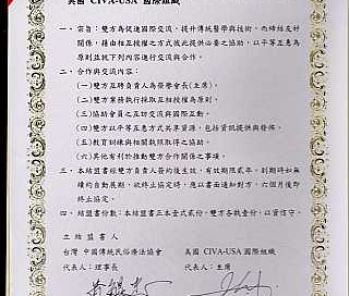 美國 CIVA-USA 國際組織
一、宗旨：雙方為促進國際交流，提升傳統醫學與技術，而締結友好
關係，藉由相互授權之方式彼此提供必要之協助，以平等互惠為
原則並就下列內容進行交流與合作。
二、合作與交流內容：
(一)雙方互聘負責人為榮譽會長(主席)。
(二)雙方業務執行採取互相授權為原則。
(三)協助會員之互訪與交流國際互動。
(四)雙方以平等互惠方式共享資源，包括資訊提供與發佈。
(五)教育訓練與相關教照取得之協助。
(六)其他有利於推動雙方合作關係之事項。
三、本結盟書經雙方負責人簽約後生效，有效期限貳年。到期時如無
續約自動展期，欲終止協定時，應以書面通知對方，六個月後即
終止協定。
四、結盟書份數：本結盟書正本壹式貳份，雙方各執壹份，以資信守。
立結盟書人
台灣 中國傳統民俗療法協會 美國 CIVA-USA 國際組織
代表人：理事長 代表人：主席